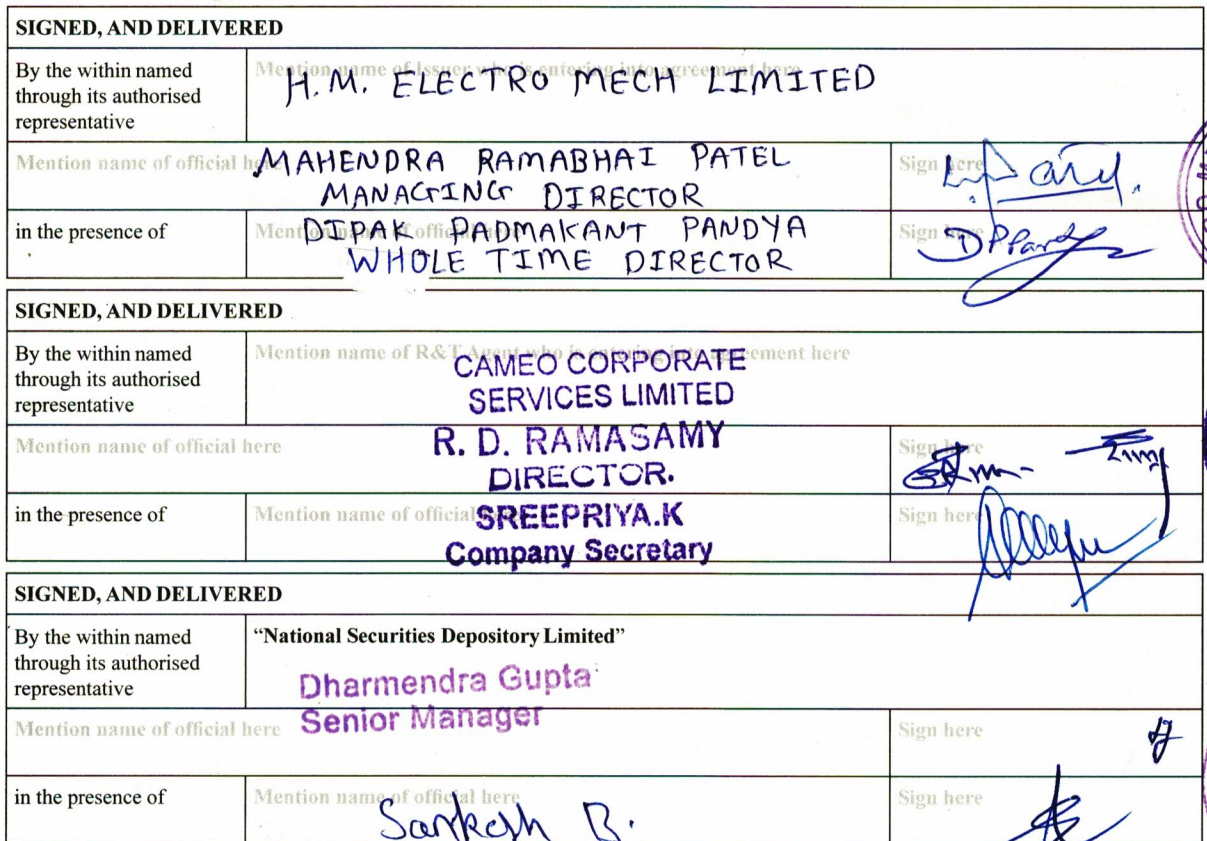 SIGNED, AND DELIVERED
By the within named
through its authorised
representative
Mention name of Issuer who is entering into agreement here
H.M. ELECTRO MECH LIMITED
Mention name of official here
MAHENDRA RAMABHAI PATEL
MANAGING DIRECTOR
Sign here
in the presence of
Mention name of official here
DIPAK PADMAKANT PANDYA
WHOLE TIME DIRECTOR
Sign here
SIGNED, AND DELIVERED
By the within named
through its authorised
representative
Mention name of R&T Agent who is entering into agreement here
CAMEO CORPORATE
SERVICES LIMITED
Mention name of official here
R. D. RAMASAMY
DIRECTOR.
Sign here
in the presence of
Mention name of official here
SREEPRIYA.K
Company Secretary
Sign here
SIGNED, AND DELIVERED
By the within named
through its authorised
representative
“National Securities Depository Limited”
Dharmendra Gupta
Senior Manager
Mention name of official here
Sign here
in the presence of
Mention name of official here
B.
Sign here